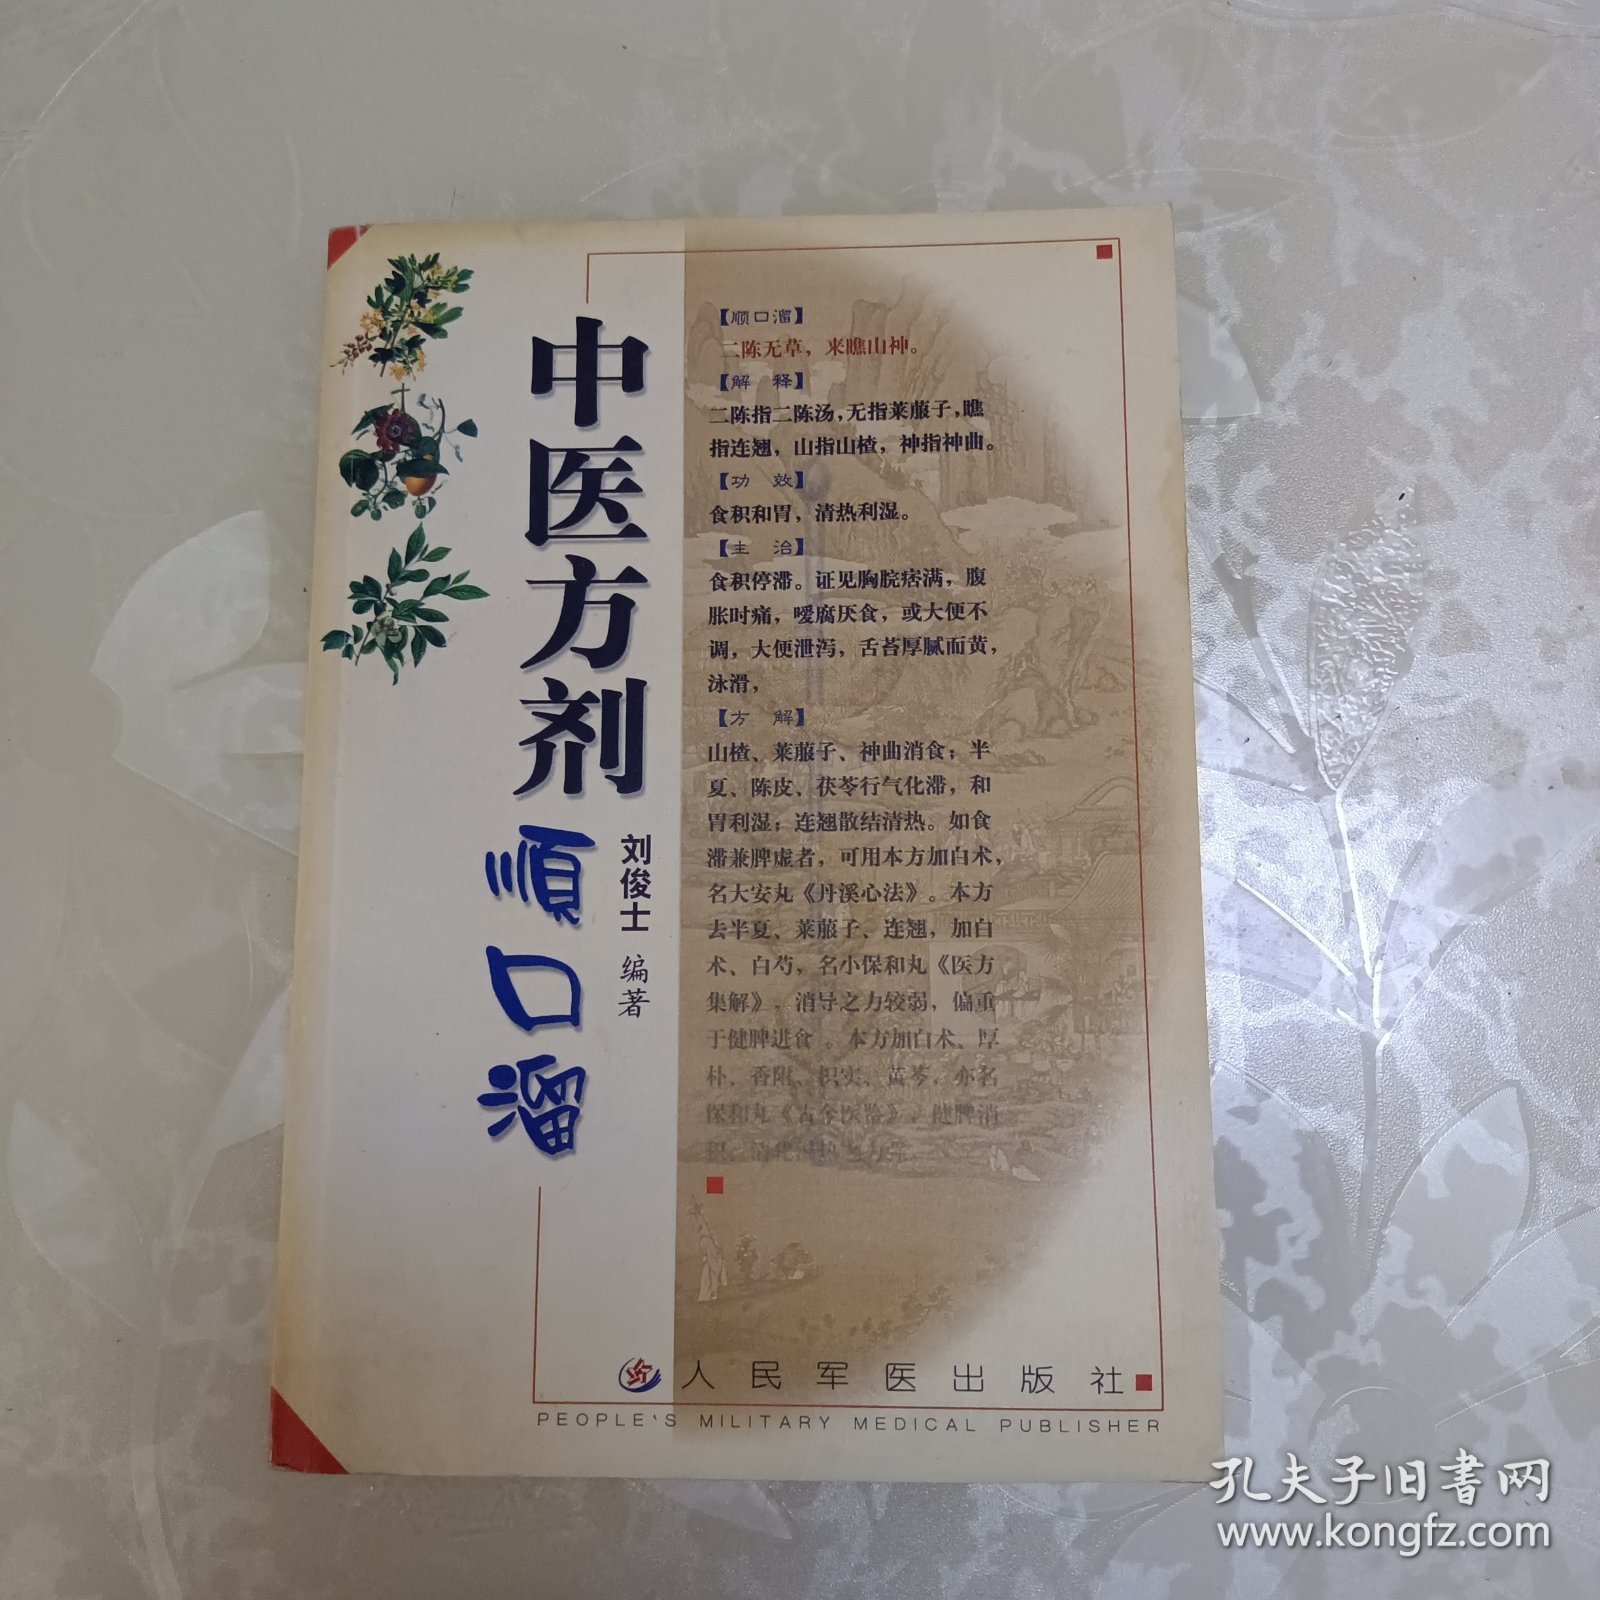 中医方剂
顺口溜
刘俊士 编著
【顺口溜】
二陈无草，来瞧山神。
【解 释】
二陈指二陈汤，无指莱菔子，瞧
指连翘，山指山楂，神指神曲。
【功 效】
食积和胃，清热利湿。
【主 治】
食积停滞。证见胸脘痞满，腹
胀时痛，嗳腐厌食，或大便不
调，大便泄泻，舌苔厚腻而黄，
泳滑，
【方 解】
山楂、莱菔子、神曲消食；半
夏、陈皮、茯苓行气化滞，和
胃利湿；连翘散结清热。如食
滞兼脾虚者，可用本方加白术，
名大安丸《丹溪心法》。本方
去半夏、莱菔子、连翘，加白
术、白芍，名小保和丸《医方
集解》，消导之力较弱，偏重
于健脾进食 。本方加白术、厚
朴、香附、枳实、黄芩，亦名
保和丸《古今医鉴》，健脾消
人民军医出版社
PEOPLE'S MILITARY MEDICAL PUBLISHER
孔夫子旧書网
www.kongfz.com